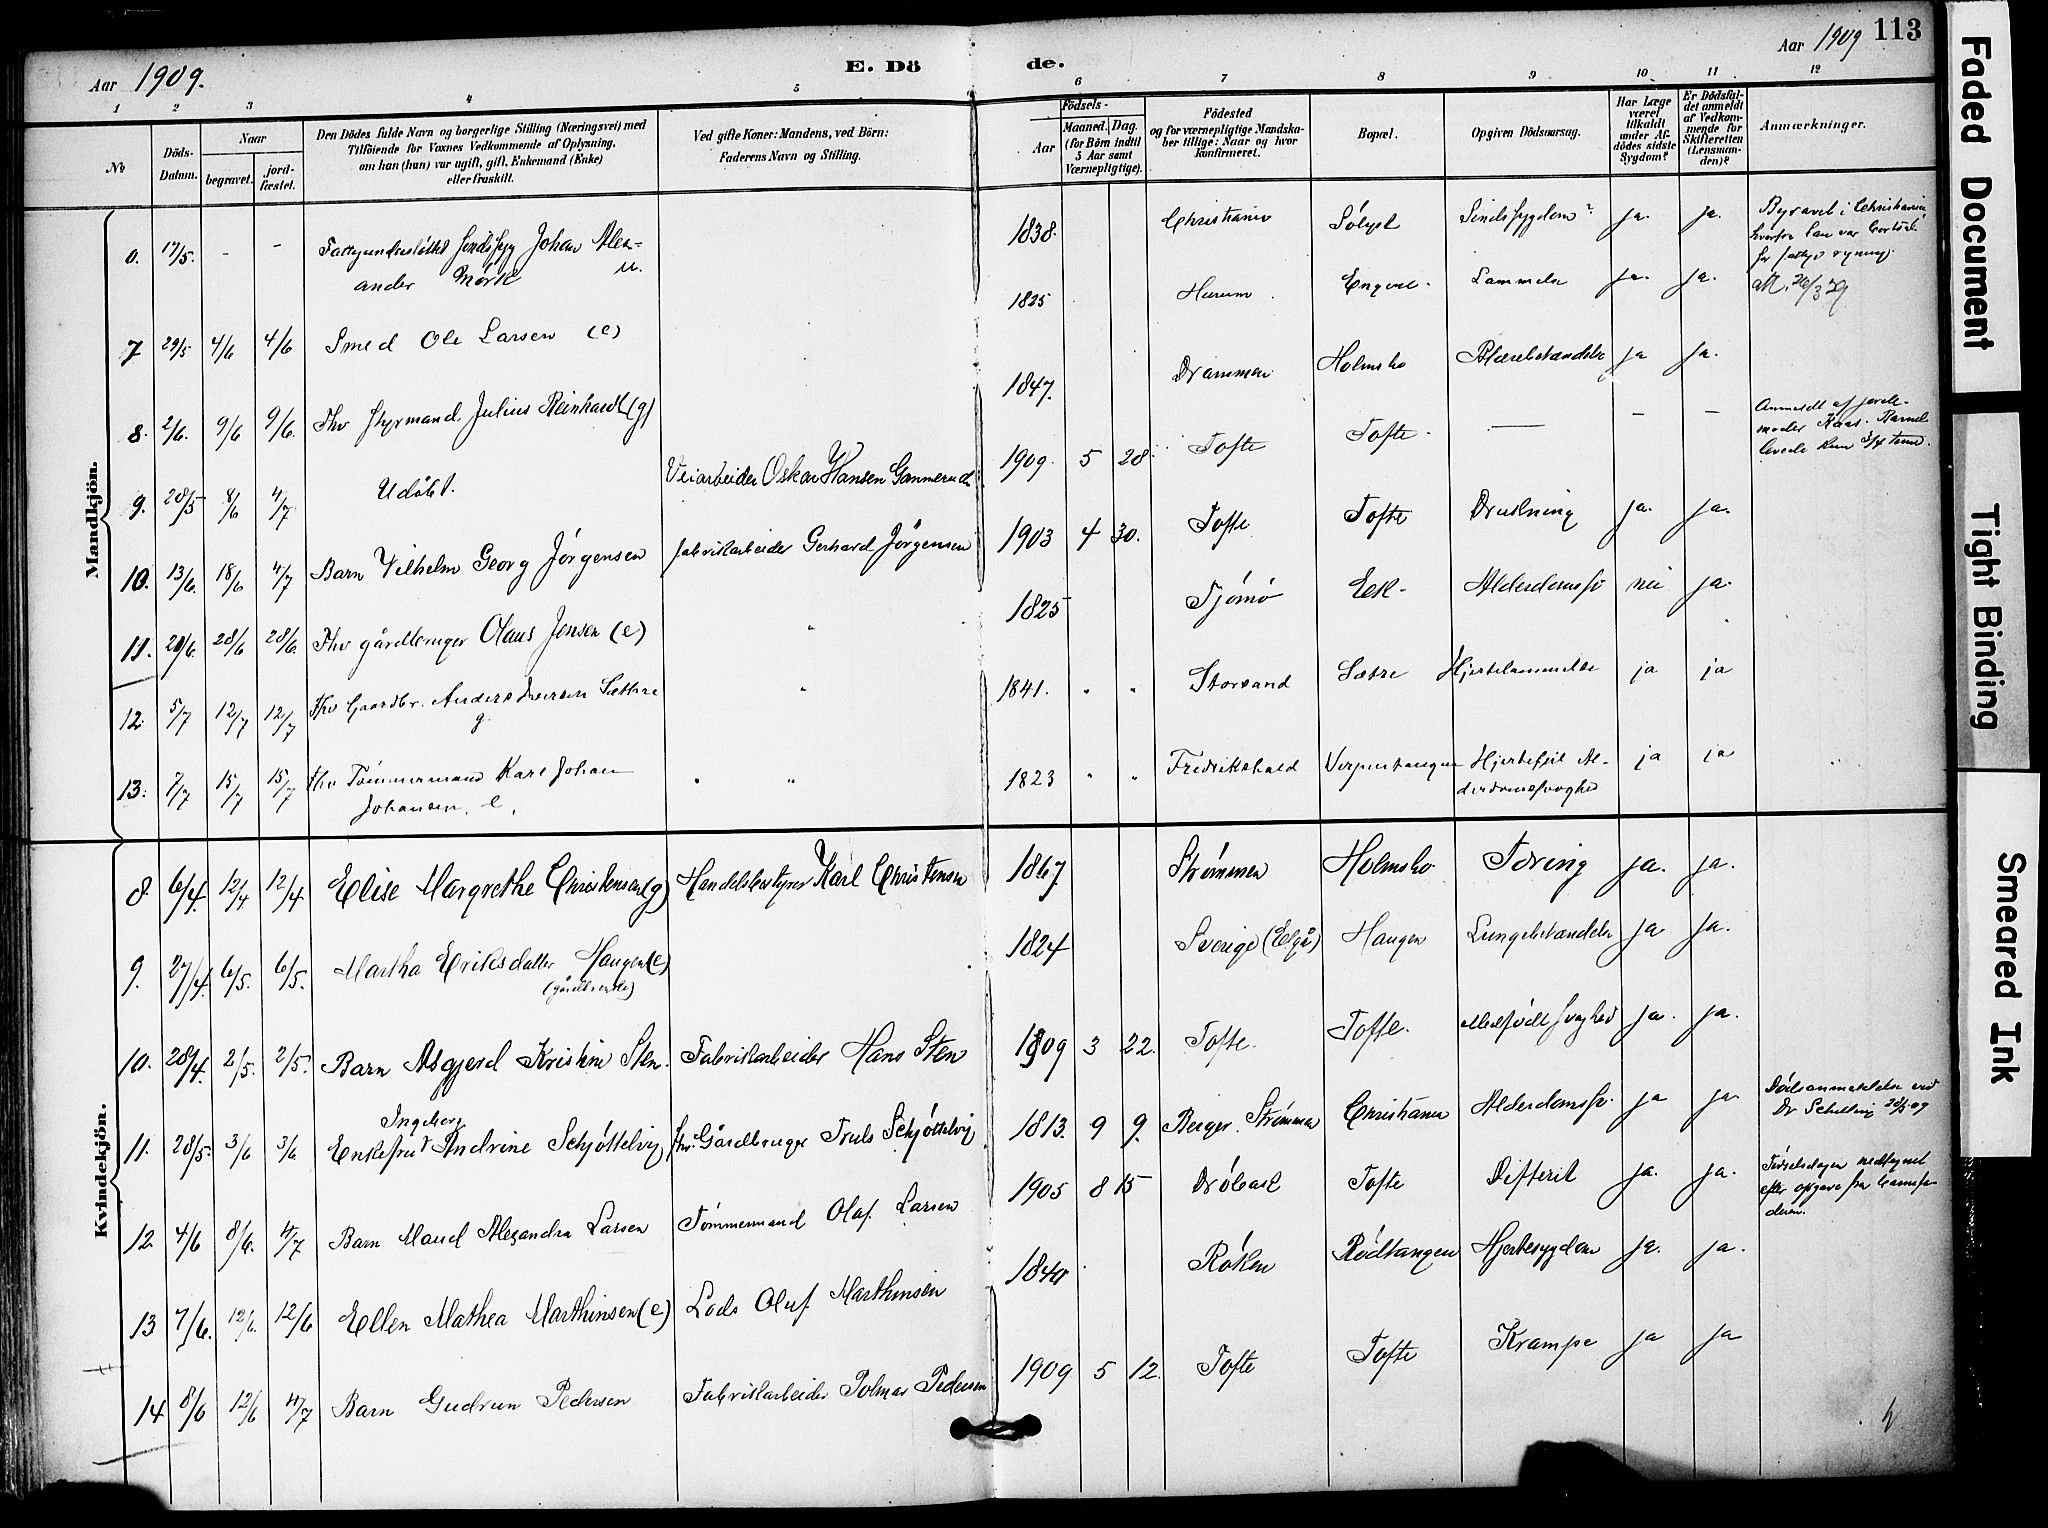 Aar 1909.
E. Dö
de.
Aar 1909
113
1 2 3 4 5 6 7 8 9 10 11 12
No
Döds-Datum.
Naar
begravet.
jord-fæstet.
Den Dödes fulde Navn og borgerlige Stilling (Næringsvei) med
Tilföiende for Voxnes Vedkommende af Oplysning,
om han (hun) var ugift, gift, Enkemand (Enke)
eller fraskilt.
Ved gifte Koner: Mandens, ved Börn:
Faderens Navn og Stilling.
Födsels-
Aar
Maaned. Dag.
(for Börn indtil
5 Aar samt
Værnepligtige).
Födested
og for værnepligtige Mandska-
ber tillige: Naar og hvor
konfirmeret.
Bopæl.
Opgiven Dödsaarsag.
Har Læge
været
tilkaldt
under Af-
dödes sidste
Sygdom?
Er Dödsfal-
det anmeldt
af Vedkom-
mende for
Skifteretten
(Lensman-
den)?
Anmærkninger.
Mandkjön.
6. 17/5. - - Johan Alex-
ander Mörk u.
1838. Christiania Sindssygdom? ja. ja. Begravet i Christiania
hvorfra han var
7 29/5 4/6 4/6 Smed Ole Larsen (e)
1825 Hurum. ja. ja.
8. 2/6. 9/6 9/6. Fhv Styrmand Julius Reinhardt (g)
1847. Drammen Holmsbo Blærebetændelse ja ja.
9. 28/5 8/6 4/7 Udöbt. Veiarbeider Oskar Hansen Gammerud
1909. 5 28. Tofte Tofte. — — — Anmeldt af jorde-
moder Barnet
levede kun 3/4 time.
10. 13/6. 18/6 4/7 Barn Vilhelm Georg Jörgensen fabrikarbeider Gerhard Jörgensen
1903 4 30. Tofte Tofte Drukning ja. ja.
11. 28/6 28/6. Fhv gårdbruger Olaus Jensen (e) "
1825 Tjömö Eek. Alderdomssv nei ja.
12. 5/7 12/7 12/7 Fhv Gaardbr. Anders Iversen Sætre g. "
1841. " " Storsand Sætre Hjertelammelse ja ja
13. 7/7 15/7 15/7 fhv Tömmermand Karl Johan
Johansen. e. " "
1823 " " Fredrikshald Verpentangen Hjertefeil Al-
derdomssvaghed ja ja
Kvindekjön.
8. 6/4. 12/4 12/4 Elise Margrethe Christensen (g) Handelsbestyrer Karl Christensen
1867 Strömmen Holmsbo Tæring ja. ja.
9. 27/4. 6/5. 6/5. Martha Eriksdatter Haugen (e)
1824 Sverige Haugen Lungebetændelse ja ja.
10. 28/4. 2/5. 2/5. Barn Asgjerd Kristine Sten. Fabrikarbeider Hans Sten
1909 3 22. Tofte. Tofte. Medfödt svaghed ja. ja.
11. 28/5. 3/6 3/6. Enkefru Ingeborg Andrine Schjöttelvig fhv. Gårdbruger Truls Schjöttelvig
1813. 9 9. Berger. Strömmen Christiania Alderdomssv. ja ja. Dödsanmeldelse ved
Dr 28/5 09
12. 4/6 8/6. 4/7 Barn Maud Alexandra Larsen Tömmermand Olaf Larsen
1905 8 15 Dröbak Tofte Difterit ja. ja. Födselsdagen nedtegnet
efter opgave fra
13 7/6. 12/6. 12/6 Ellen Mathea Marthinsen (e) Lods Oluf Marthinsen
1840 Röken Rödtangen Hjertesygdom ja. ja.
14 8/6 12/6 4/7 Barn Gudrun Pedersen Fabrikarbeider Pedersen
1909 5 12. Tofte Tofte Krampe ja ja
Faded Document
Tight Binding
Smeared Ink